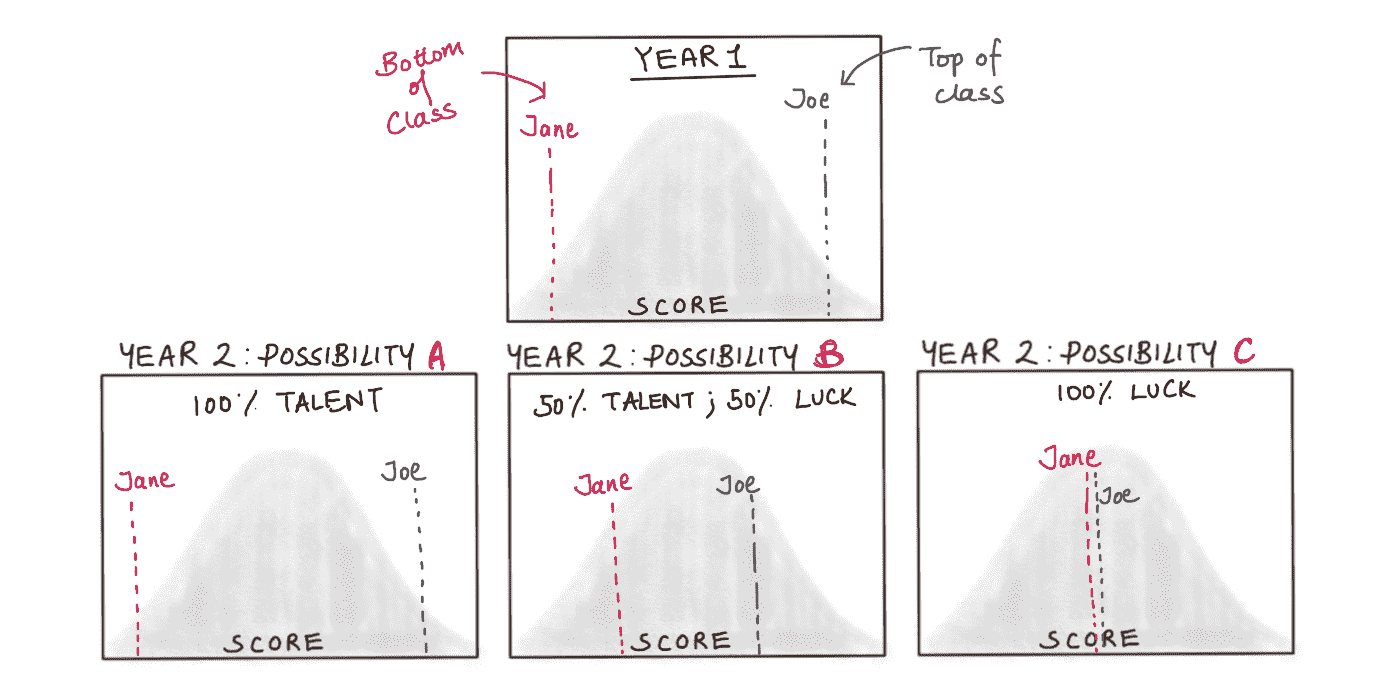 YEAR 1
Bottom
of
Class
Jane
Joe
Top of
class
SCORE
YEAR 2: POSSIBILITY A
100% TALENT
Jane
Joe
SCORE
YEAR 2: POSSIBILITY B
50% TALENT; 50% LUCK
Jane
Joe
SCORE
YEAR 2: POSSIBILITY C
100% LUCK
Jane
Joe
SCORE